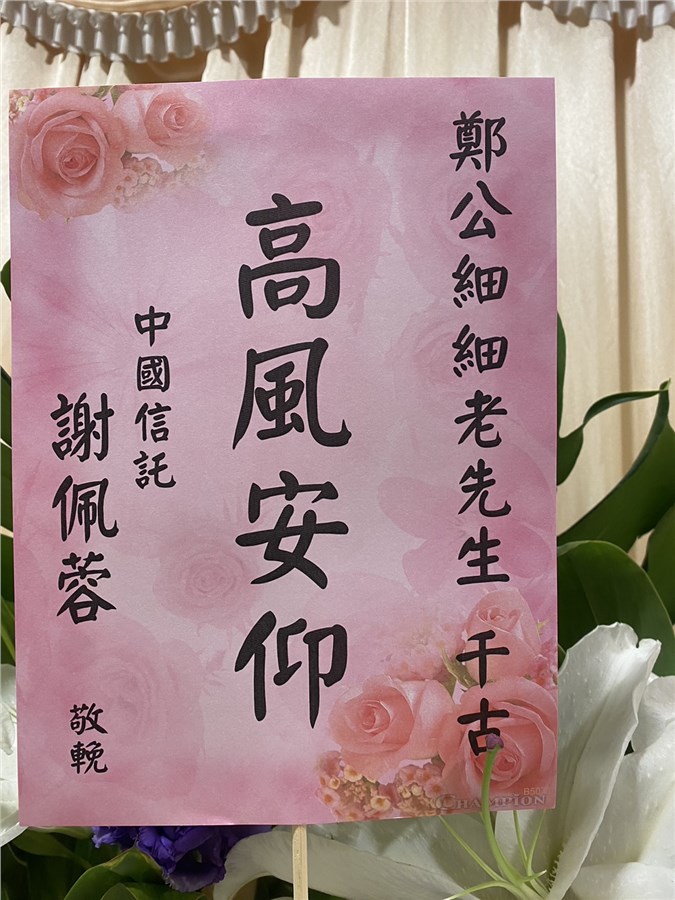 鄭公細細老先生 千古
高風安仰
中國信託
謝佩蓉 敬輓
CHAMPION